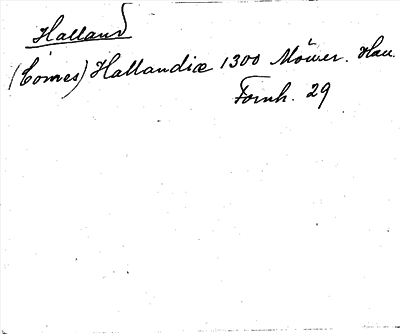 Halland
(Comes) Hallandiæ 1300 Möwer. Hau.
Fornh. 29